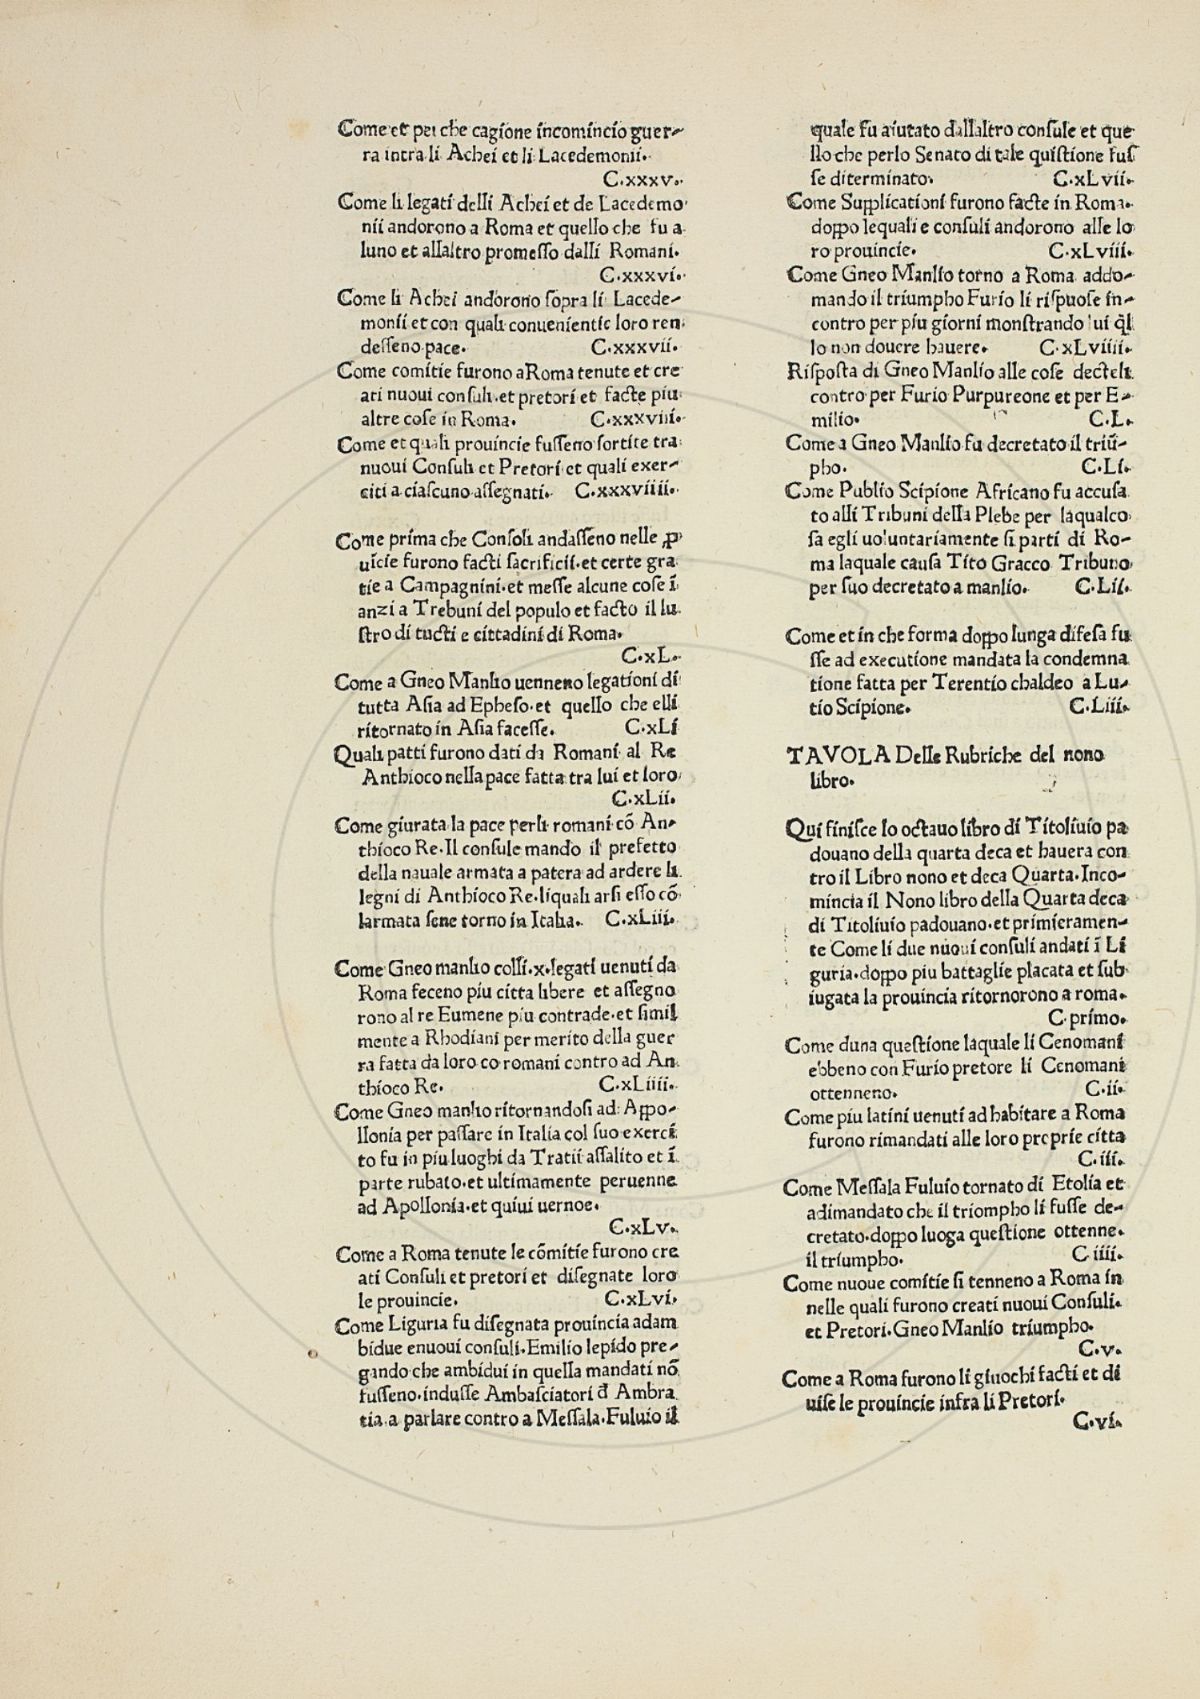 Come et per che cagione incomincio guer-
ra intra li Achei et li Lacedemonii.
C.xxxv.
Come li legati delli Achei et de Lacedemo
nii andorono a Roma et quello che fu a
luno et allaltro promeſſo dalli Romani.
C.xxxvi.
Come li Achei andorono ſopra li Lacede-
monii et con quali conuenientie loro ren
deſſeno pace. C.xxxvii.
Come comitie furono a Roma tenute et cre
ati nuoui conſuli.et pretori et facte piu
altre coſe in Roma. C.xxxviii.
Come et quali prouincie fuſſeno ſortite tra
nuoui Conſuli et Pretori et quali exer-
citi a ciaſcuno aſſegnati. C.xxxviiii.
Come prima che Conſoli andaſſeno nelle ꝓ
uīcie furono facti ſacrificii.et certe gra
tie a Campagnini.et meſſe alcune coſe ī
anzi a Trebuni del populo et facto il lu
ſtro di tucti e cittadini di Roma.
C.xL.
Come a Gneo Manlio uenneno legationi di
tutta Aſia ad Epheſo.et quello che elli
ritornato in Aſia faceſſe. C.xLi
Quali patti furono dati da Romani al Re
Anthioco nella pace fatta tra lui et loro
C.xLii.
Come giurata la pace perli romani cō An-
thioco Re.Il conſule mando il prefetto
della nauale armata a patera ad ardere li
legni di Anthioco Re.liquali arſi eſſo cō
larmata ſene torno in Italia. C.xLiii.
Come Gneo manlio colli.x.legati uenuti da
Roma feceno piu citta libere et aſſegno
rono al re Eumene piu contrade.et ſimil
mente a Rhodiani per merito della guer
ra fatta da loro co romani contro ad An
thioco Re. C.xLiiii.
Come Gneo manlio ritornandoſi ad Appo-
llonia per paſſare in Italia col ſuo exerci
to fu in piu luoghi da Tratii aſſalito et ī
parte rubato.et ultimamente peruenne
ad Apollonia.et quiui uernoe.
C.xLv.
Come a Roma tenute le cōmitie furono cre
ati Conſuli et pretori et diſegnate loro
le prouincie. C.xLvi.
Come Liguria fu diſegnata prouincia adam
bidue enuoui conſuli.Emilio lepido pre-
gando che ambidui in quella mandati nō
fuſſeno.induſſe Ambaſciatori đ Ambra
tia a parlare contro a Meſſala.Fuluio il
quale fu aiutato dallaltro conſule et que
llo che perlo Senato di tale quiſtione fuſ
ſe diterminato. C.xLvii.
Come Supplicationi furono facte in Roma.
doppo lequali e conſuli andorono alle lo
ro prouincie. C.xLviii.
Come Gneo Manlio torno a Roma addo-
mando il triumpho Furio li riſpuoſe in-
contro per piu giorni monſtrando lui q̄l
lo non douere hauere. C.xLviiii.
Riſpoſta di Gneo Manlio alle coſe decteli
contro per Furio Purpureone et per E-
milio. C.L.
Come a Gneo Manlio fu decretato il triū-
pho. C.Li.
Come Publio Scipione Africano fu accuſa
to alli Tribuni della Plebe per laqualco
ſa egli uoluntariamente ſi parti di Ro-
ma laquale cauſa Tito Gracco Tribuno
per ſuo decretato a manlio. C.Lii.
Come et in che forma doppo lunga difeſa fu
ſſe ad executione mandata la condemna
tione fatta per Terentio chaldeo a Lu-
tio Scipione. C.Liii.
TAVOLA Delle Rubriche del nono
libro.
Qui finiſce lo octauo libro di Titoliuio pa
douano della quarta deca et hauera con
tro il Libro nono et deca Quarta.Inco-
mincia il Nono libro della Quarta deca
di Titoliuio padouano.et primieramen-
te Come li due nuoui conſuli andati ī Li
guria.doppo piu battaglie placata et ſub
iugata la prouincia ritornorono a roma.
C.primo.
Come duna queſtione laquale li Cenomani
ebbeno con Furio pretore li Cenomani
ottenneno. C.ii.
Come piu latini uenuti ad habitare a Roma
furono rimandati alle loro proprie citta
C.iii.
Come Meſſala Fuluio tornato di Etolia et
adimandato che il triompho li fuſſe de-
cretato.doppo luoga queſtione ottenne.
il triumpho. C iiii.
Come nuoue comitie ſi tenneno a Roma in
nelle quali furono creati nuoui Conſuli.
et Pretori.Gneo Manlio triumpho.
C.v.
Come a Roma furono li giuochi facti et di
uiſe le prouincie infra li Pretori.
C.vi.